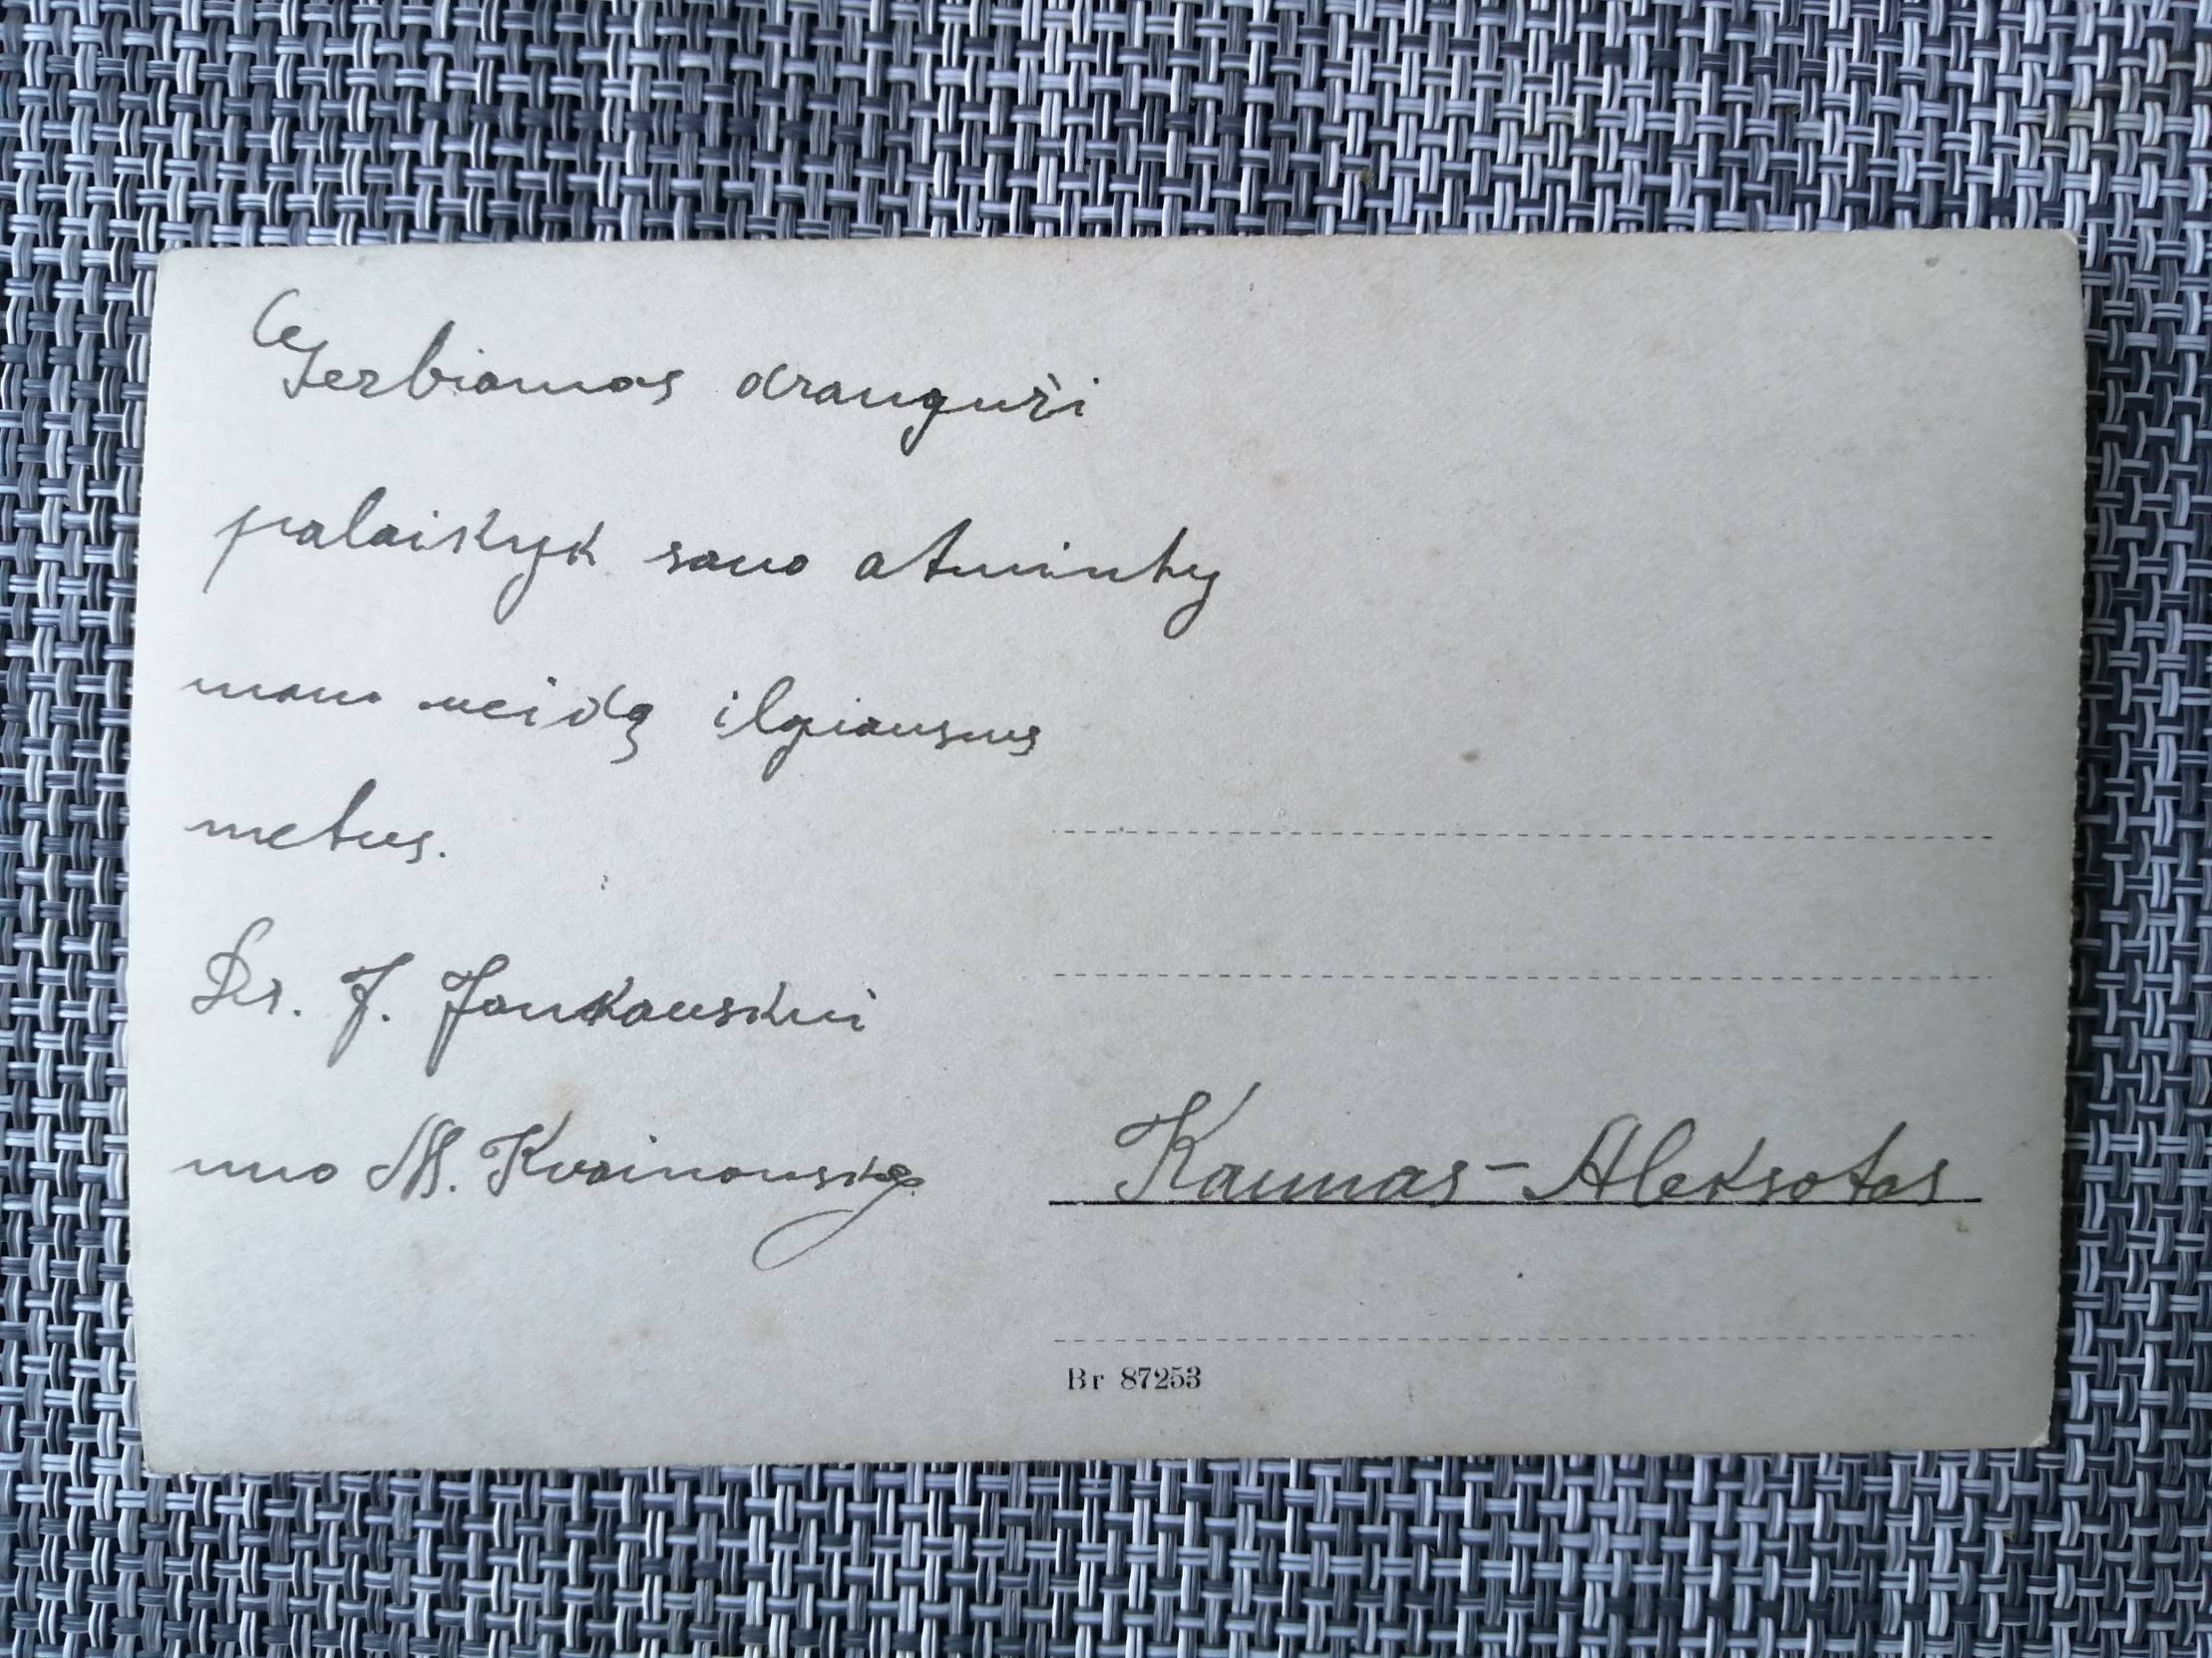 Gerbiamas drauguži
palaikyk savo atminty
mano veidą ilgiausus
metus.
Dr. J. Jankauskui
nuo M. Kvainausko
Kaunas-Aleksotas
Br 87253